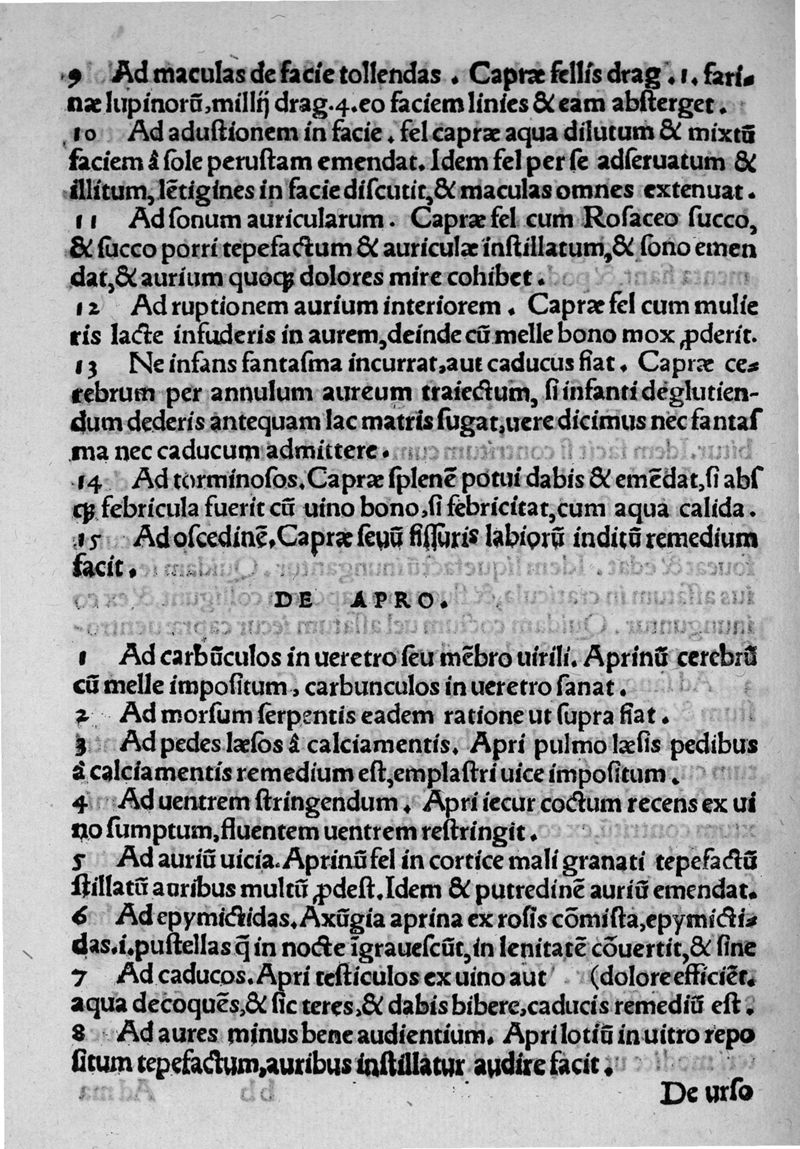 9 Ad maculas de facie tollendas . Capræ fellis drag .1. fari-
næ lupinorũ, millij drag.4.eo faciem linies & eam absterget .
10 Ad adustionem in facie . fel capræ aqua dilutum & mixtũ
faciem â sole perustam emendat. Idem fel per se adseruatum &
illitum, lẽtigines in facie discutit,& maculas omnes extenuat .
11 Ad sonum auricularum . Capræ fel cum Rosaceo succo,
& succo porri tepefactum & auriculæ instillatum,& sono emen
dat,& aurium quoqꝫ dolores mire cohibet .
12 Ad ruptionem aurium interiorem . Capræ fel cum mulie
ris lacte infuderis in aurem, deinde cũ melle bono mox ꝓderit.
13 Ne infans fantasma incurrat, aut caducus fiat . Capræ ce-
rebrum per annulum aureum traiectum, si infanti deglutien-
dum dederis antequam lac matris sugat, uere dicimus nec fantas
ma nec caducum admittere .
14 Ad torminosos. Capræ splenẽ potui dabis & emẽdat, si abs
qꝫ febricula fuerit cũ uino bono, si febricitat, cum aqua calida .
15 Ad oscedinẽ. Capræ seuũ fissuris labiorũ inditũ remedium
facit .
DE APRO.
1 Ad carbũculos in ueretro seu mẽbro uirili. Aprinũ cerebrũ
cũ melle impositum, carbunculos in ueretro sanat .
2 Ad morsum serpentis eadem ratione ut supra fiat .
3 Ad pedes læsos â calciamentis. Apri pulmo læsis pedibus
â calciamentis remedium est, emplastri uice impositum .
4 Ad uentrem stringendum . Apri iecur coctum recens ex ui
no sumptum, fluentem uentrem restringit .
5 Ad auriũ uicia. Aprinũ fel in cortice mali granati tepefactũ
stillatũ auribus multũ ꝓdest. Idem & putredinẽ auriũ emendat.
6 Ad epymictidas. Axũgia aprina ex rosis cõmista, epymicti-
das.i.pustellas q̃ in nocte ĩgrauescũt, in lenitatẽ cõuertit,& sine
7 Ad caducos. Apri testiculos ex uino aut (dolore efficiẽt.
aqua decoquẽs,& sic teres,& dabis bibere, caducis remediũ est .
8 Ad aures minus bene audientium. Apri lotiũ in uitro repo
situm tepefactum, auribus instillatur audire facit .
De urso